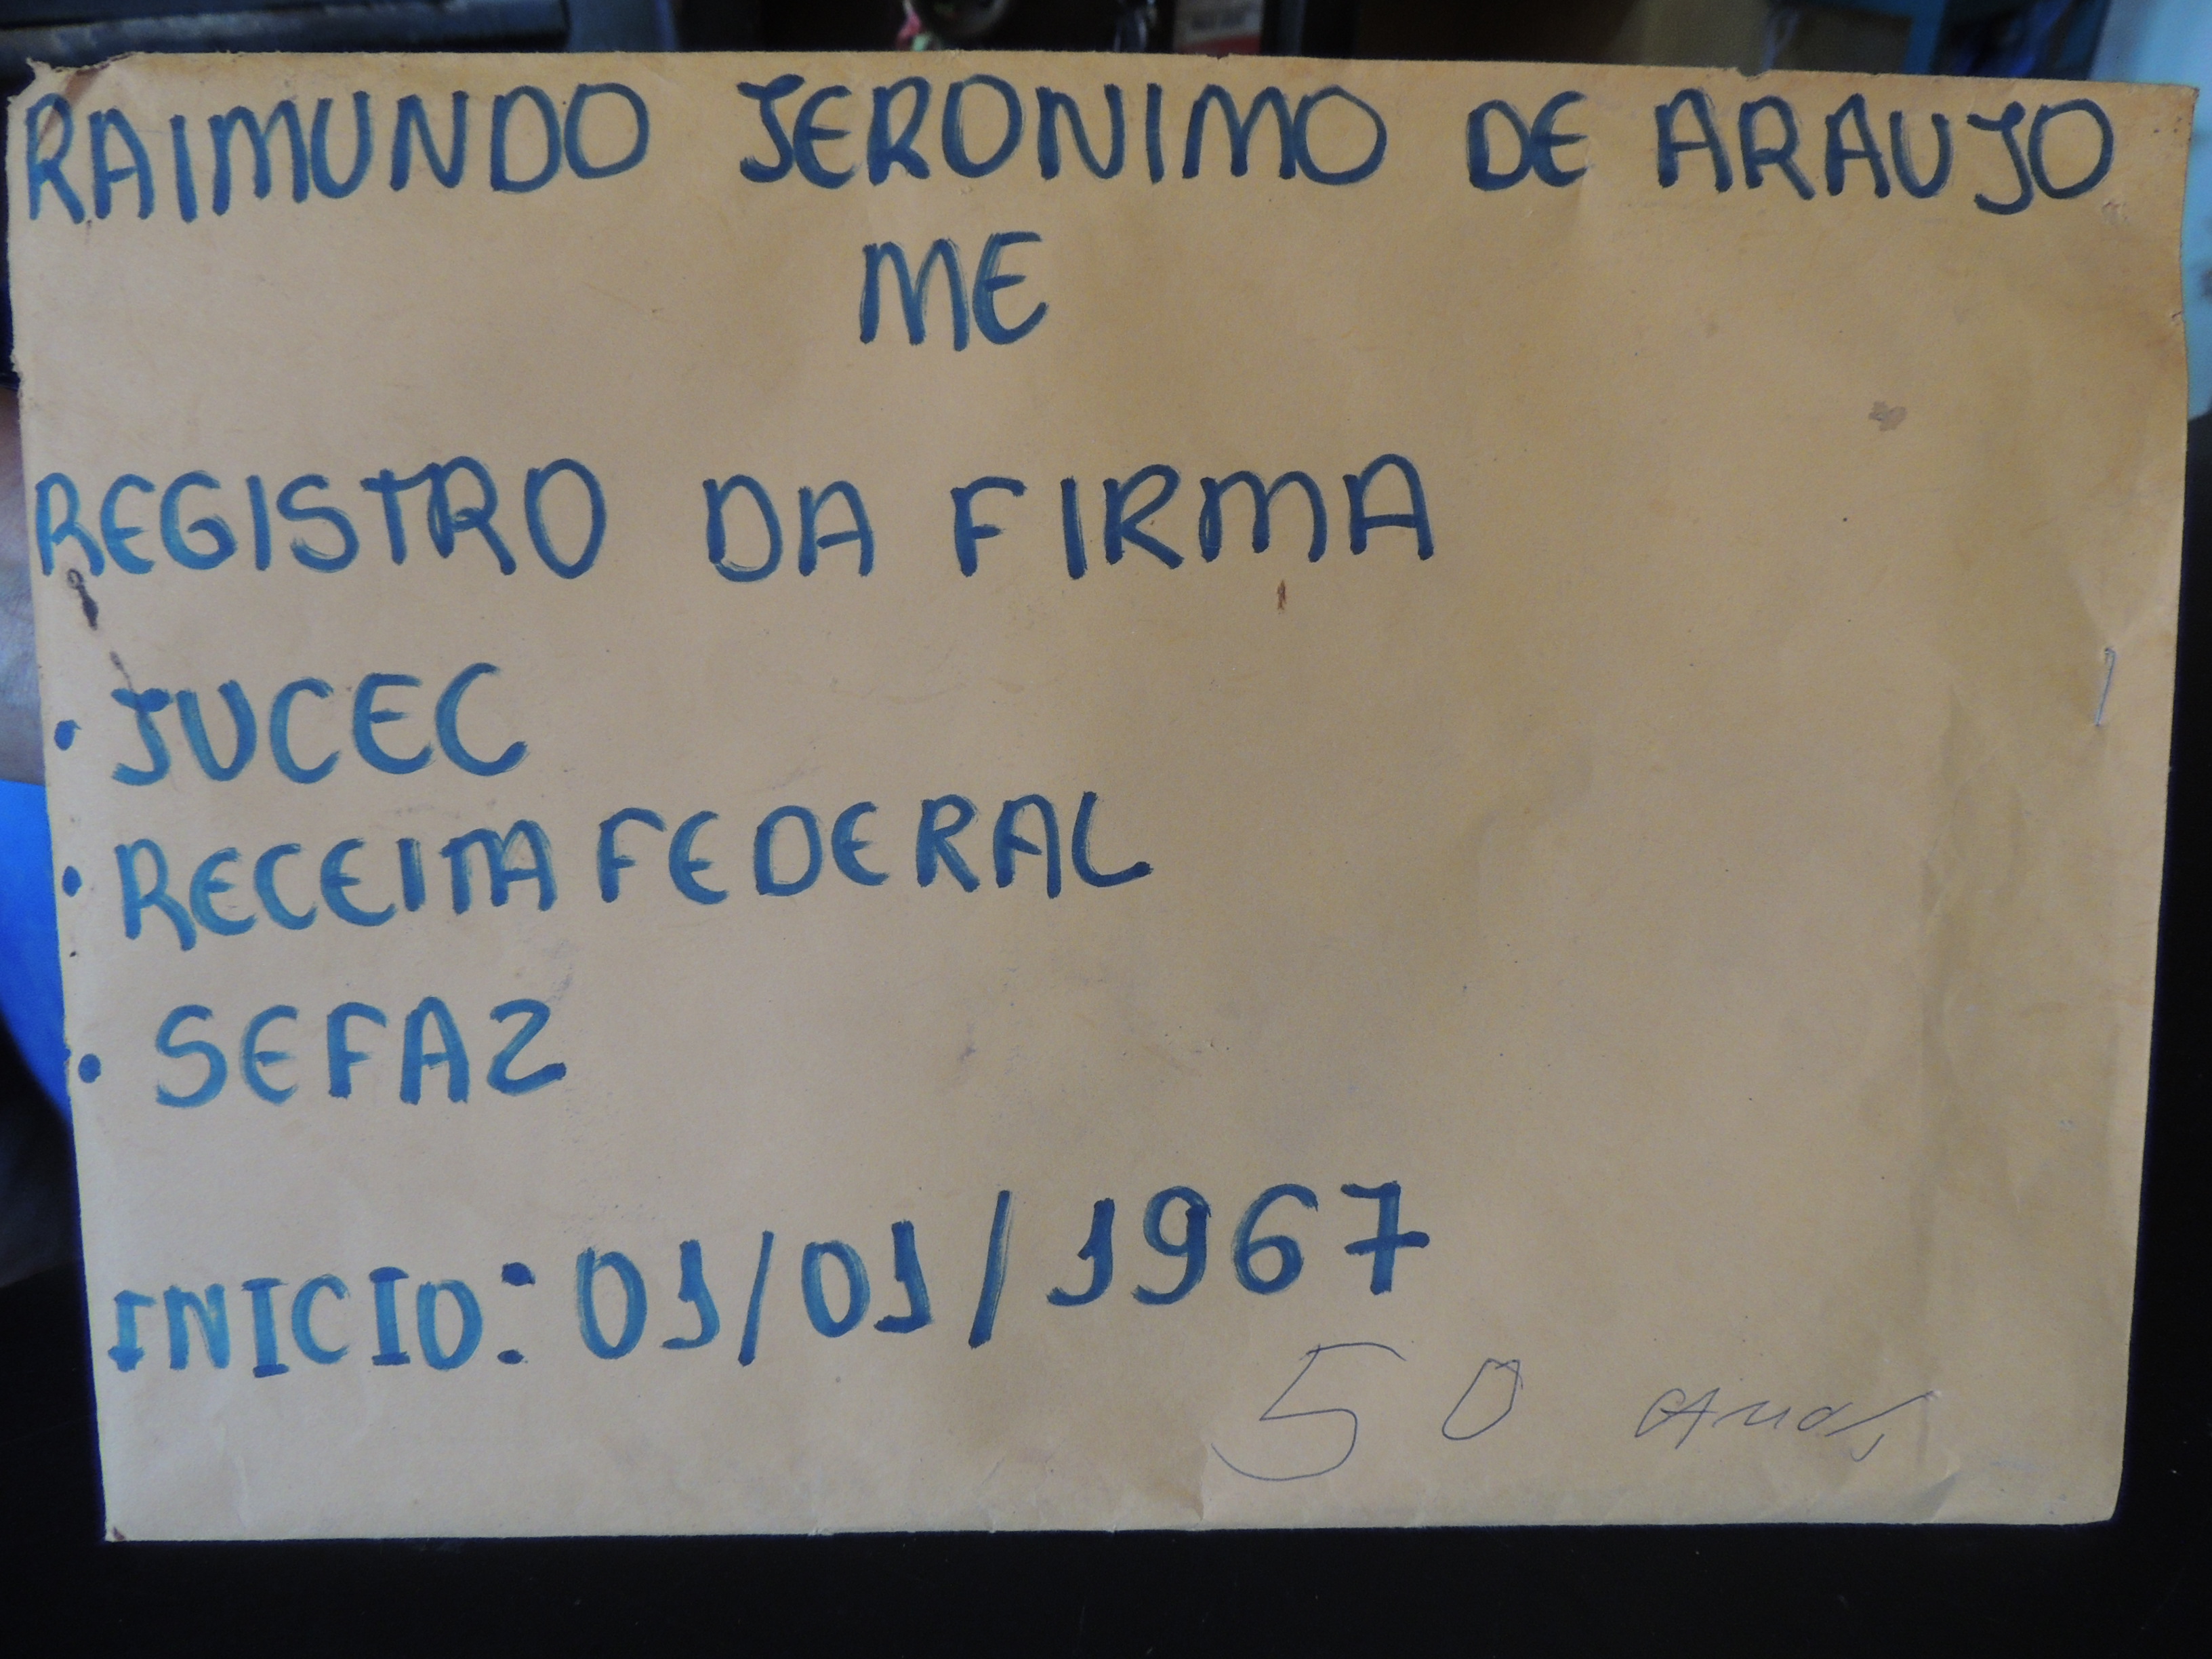 RAIMUNDO JERONIMO DE ARAUJO
ME
REGISTRO DA FIRMA
• JUCEC
• RECEITA FEDERAL
• SEFAZ
INICIO: 01/01/1967
50 anos